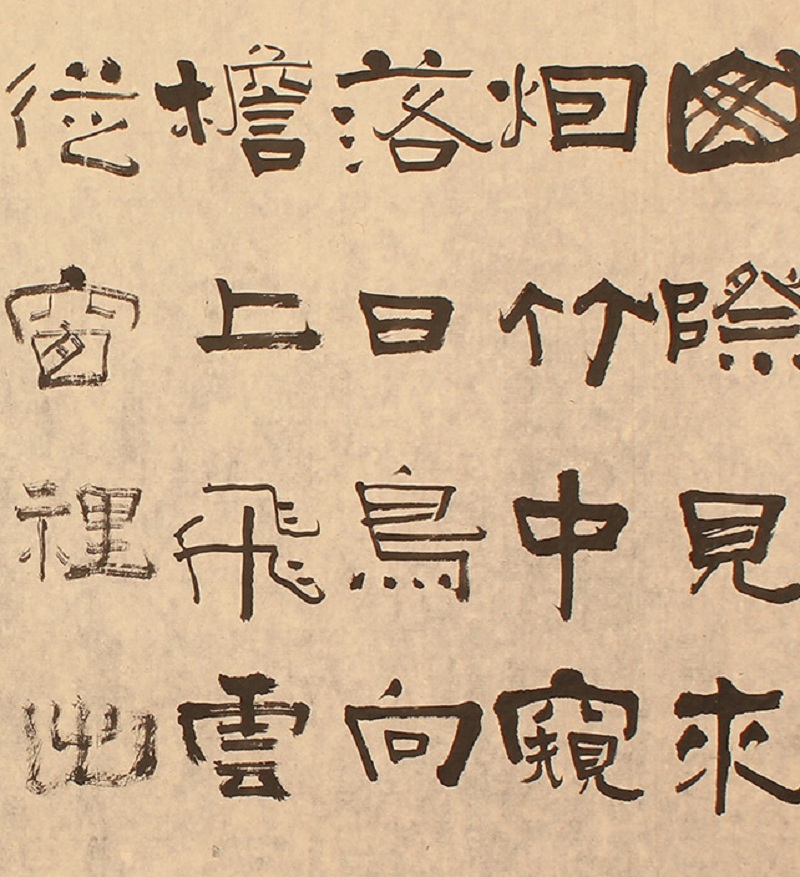 際見來
烟竹中窺
落日鳥向
檐上飛雲
從窗裡出